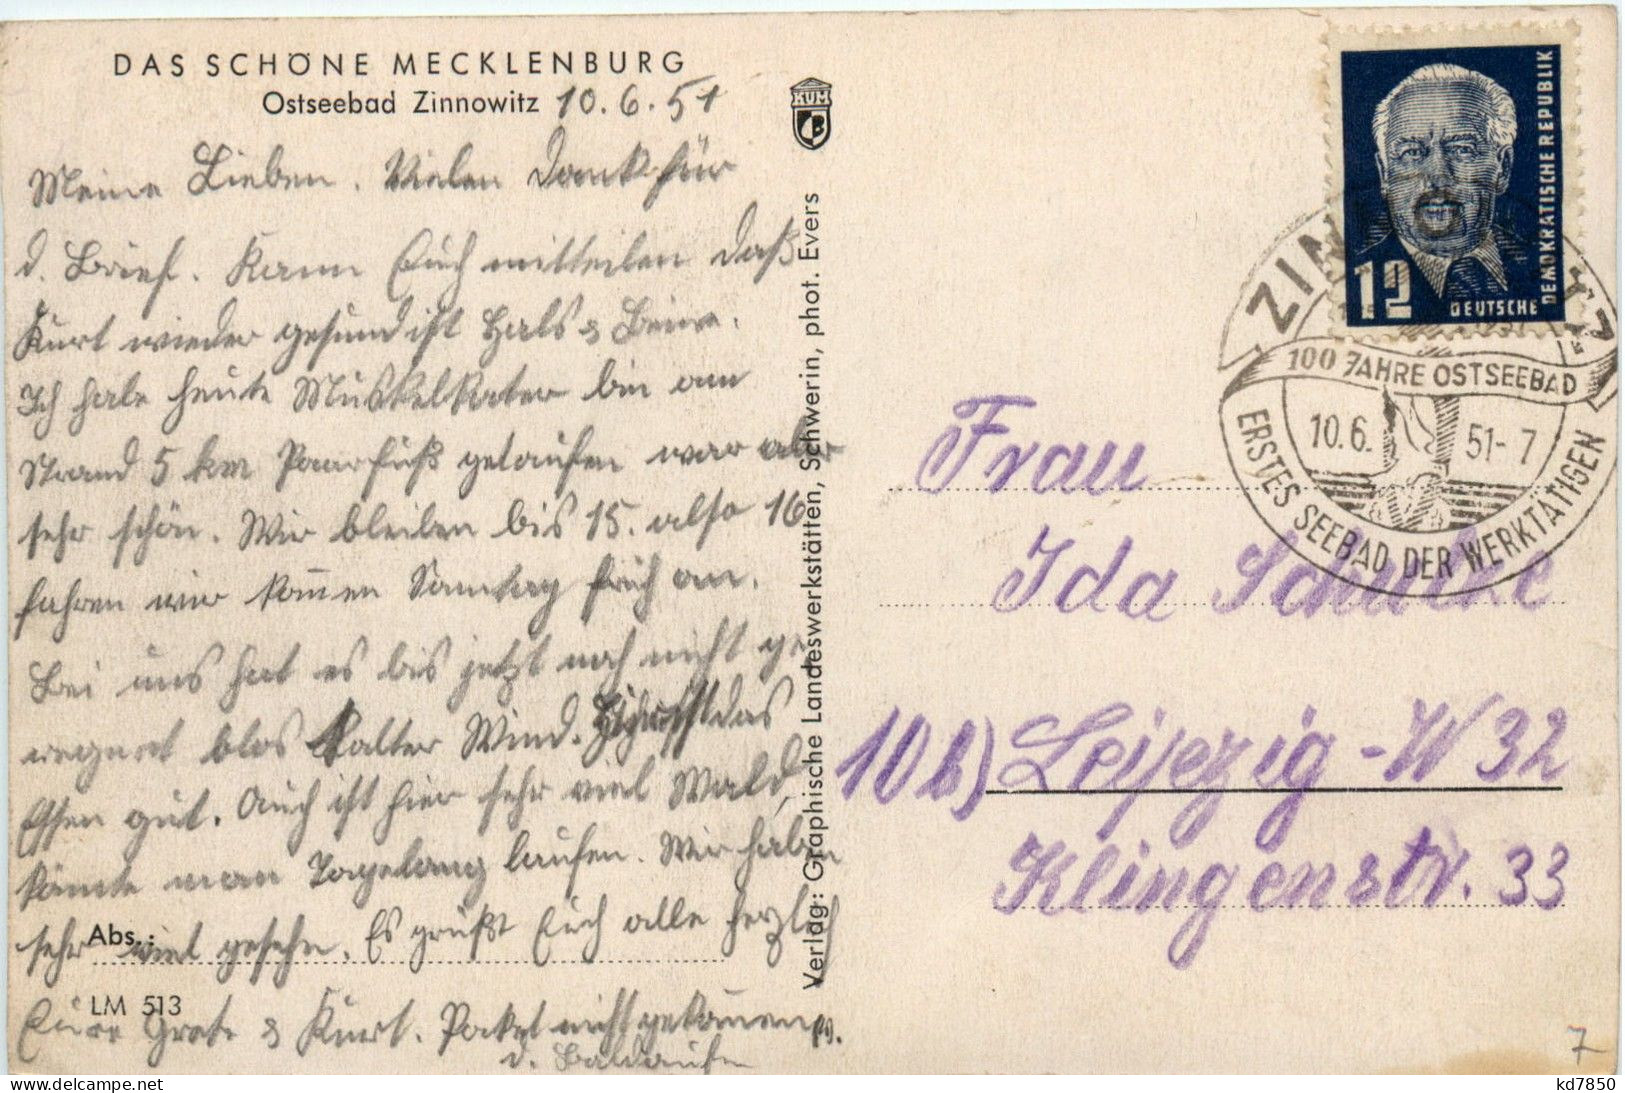 DAS SCHÖNE MECKLENBURG
Ostseebad Zinnowitz 10.6.51
Meine Lieben. Vielen Dank für
d. Brief. Kann Euch mitteilen daß
Kurt wieder gesund ist Hals & Beine.
Ich habe heute Muskelkater bin am
Strand 5 km Baarfuß gelaufen war aber
sehr schön. Wir bleiben bis 15. also 16
fahren wir kom̄en Sonntag früh an.
Bei uns hat es bis jetzt noch nicht ge
regnet blos kalter Wind. das
Essen gut. Auch ist hier sehr viel Wald,
könnte man Tagelang laufen. Wir haben
sehr viel gesehn. Es grüßt Euch alle herzlich
Eure Grete & Kurt. Paket nicht gekom̄en
d.
Abs.:
LM 513
KVM
Verlag: Graphische Landeswerkstätten, Schwerin, phot. Evers
12
DEUTSCHE
DEMOKRATISCHE REPUBLIK
ZINNOWITZ
100 JAHRE OSTSEEBAD
10.6. 51-7
ERSTES SEEBAD DER WERKTÄTIGEN
Frau
Ida Schulze
10b) Leipzig-W 32
Klingenstr. 33
7
delcampe.net
kd7850